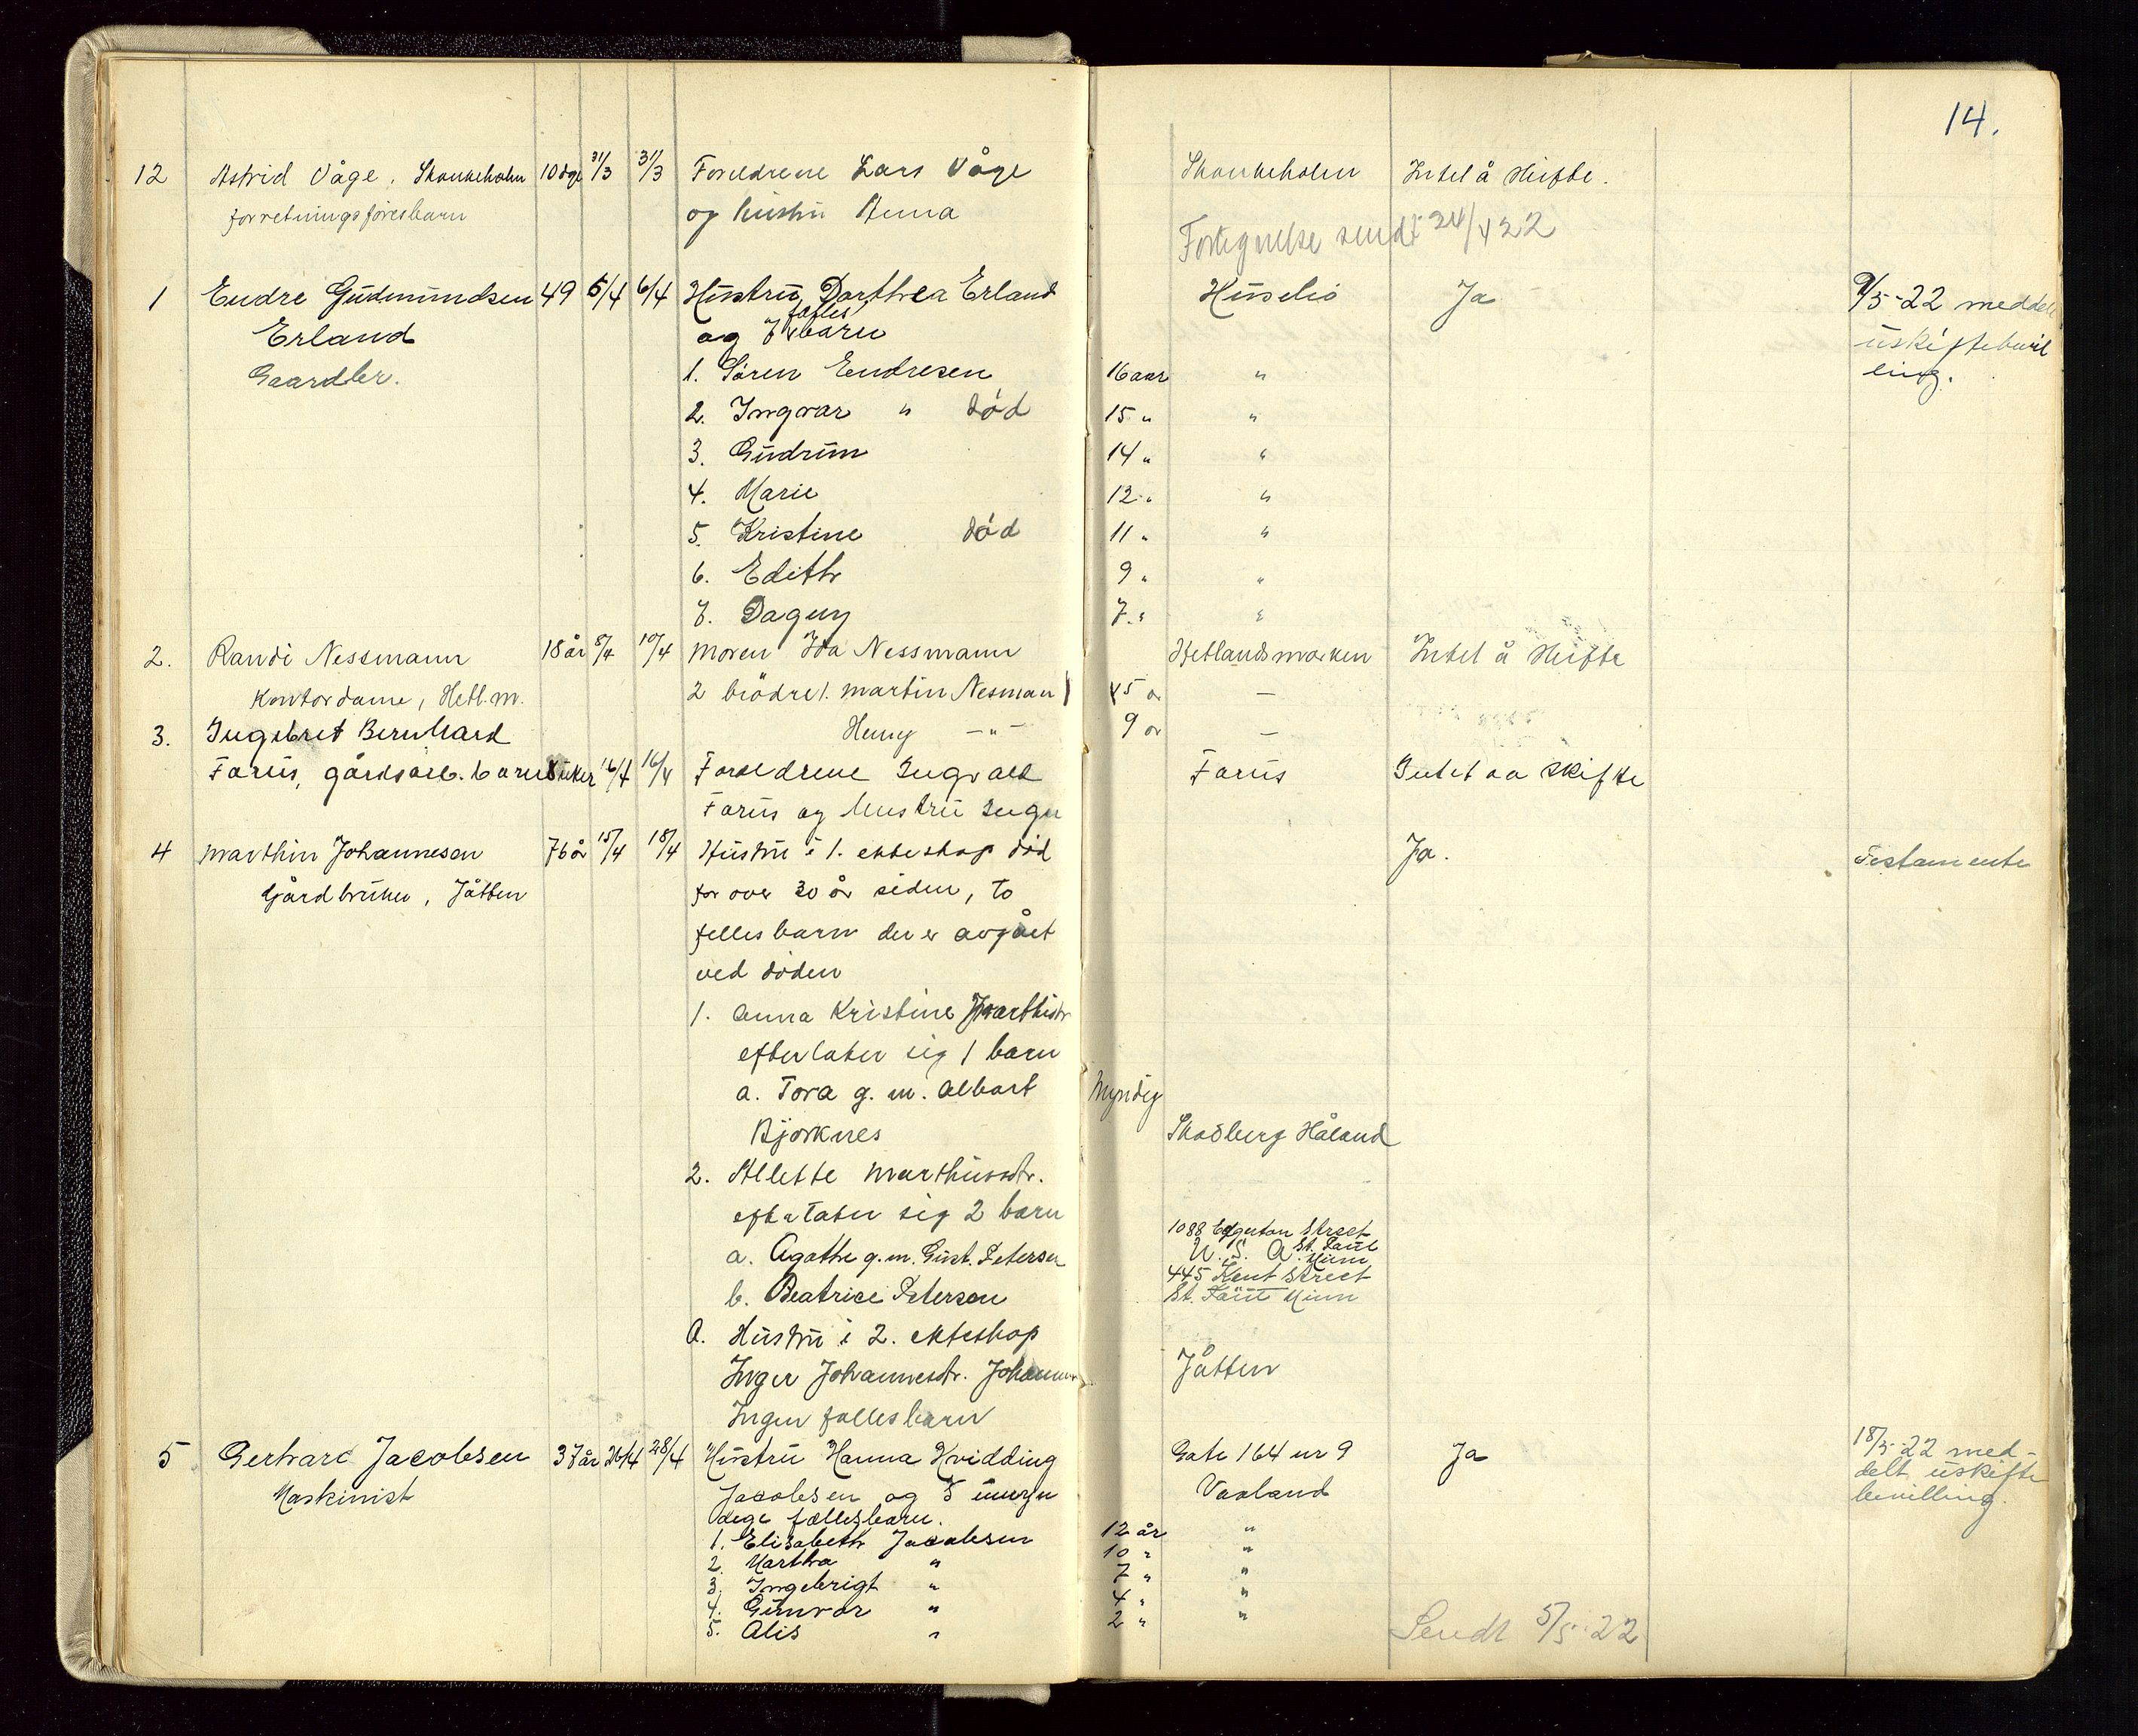 14.
12 Astrid Våge. Skonkeholm 10 dge 31/3 31/3 Foreldrene Lars Våge Skonkeholm Intet å skifte.
forretningsføresbarn og hustru Anna
Fortegnelse sendt 24/4 22
1 Endre Gudmundsen 49 5/4 6/4 Hustru Dorthea Erland Huselió Ja 9/5-22 meddelt
Erland og 7 felles barn uskiftebevil
Gaardbr. 1. Sören Endresen 16 aar " ling.
2. Ingvar " död 15 " "
3. Gudrun 14 " "
4. Marie 12 " "
5. Kristine död 11 " "
6. Edith 9 " "
7. Dagny 7 " "
2. Randi Nessmann 18 år 8/4 10/4 Moren Ida Nessmann Hetlandsmarken Intet å skifte
Kontordame, Hetl.m. 2 brödre 1. Martin Nesman 15 år —
3. Ingebret Bernhard Henry —"— 9 år —
Forus, gårdsarb. barn uker 16/4 16/4 Foreldrene Ingvald Forus Intet aa skifte
Forus og hustru Inga
4 Marthin Johannesen 76 år 15/4 18/4 Hustru i 1. ekteskap död Ja. Testamente
Gårdbruker, Jåtten for over 30 år siden, to
felles barn der er avgået
ved döden
1. Anna Kristine Marthistr
efterlater sig 1 barn
a. Tora g. m. Albert Myndig
Bjorknes Skadberg Håland
2. Allette Marthinsdtr.
efterlater sig 2 barn
1088 Edgerton Street
a. Agathe g.m. Gust. Peterson U. S. A. St. Paul Minn
445 Kent Street
b. Beatrice Peterson St. Paul Minn
A. Hustru i 2. ekteskap
Inger Johannesdtr. Johannes Jåtten
Ingen fellesbarn
5 Gerhard Jacobsen 37 år 26/4 28/4 Hustru Hanna Kvidding Gate 164 nr 9 Ja 18/5-22 med-
Maskinist Jacobsen og 5 umyn Vaaland delt uskifte
dige fællesbarn. bevilling.
1. Elisabeth Jacobsen 12 år "
2. Martha " 10 " "
3. Ingebrigt " 7 " "
4. Gunvor " 4 " "
5. Alis " 2 " "
Sendt 5/5-22